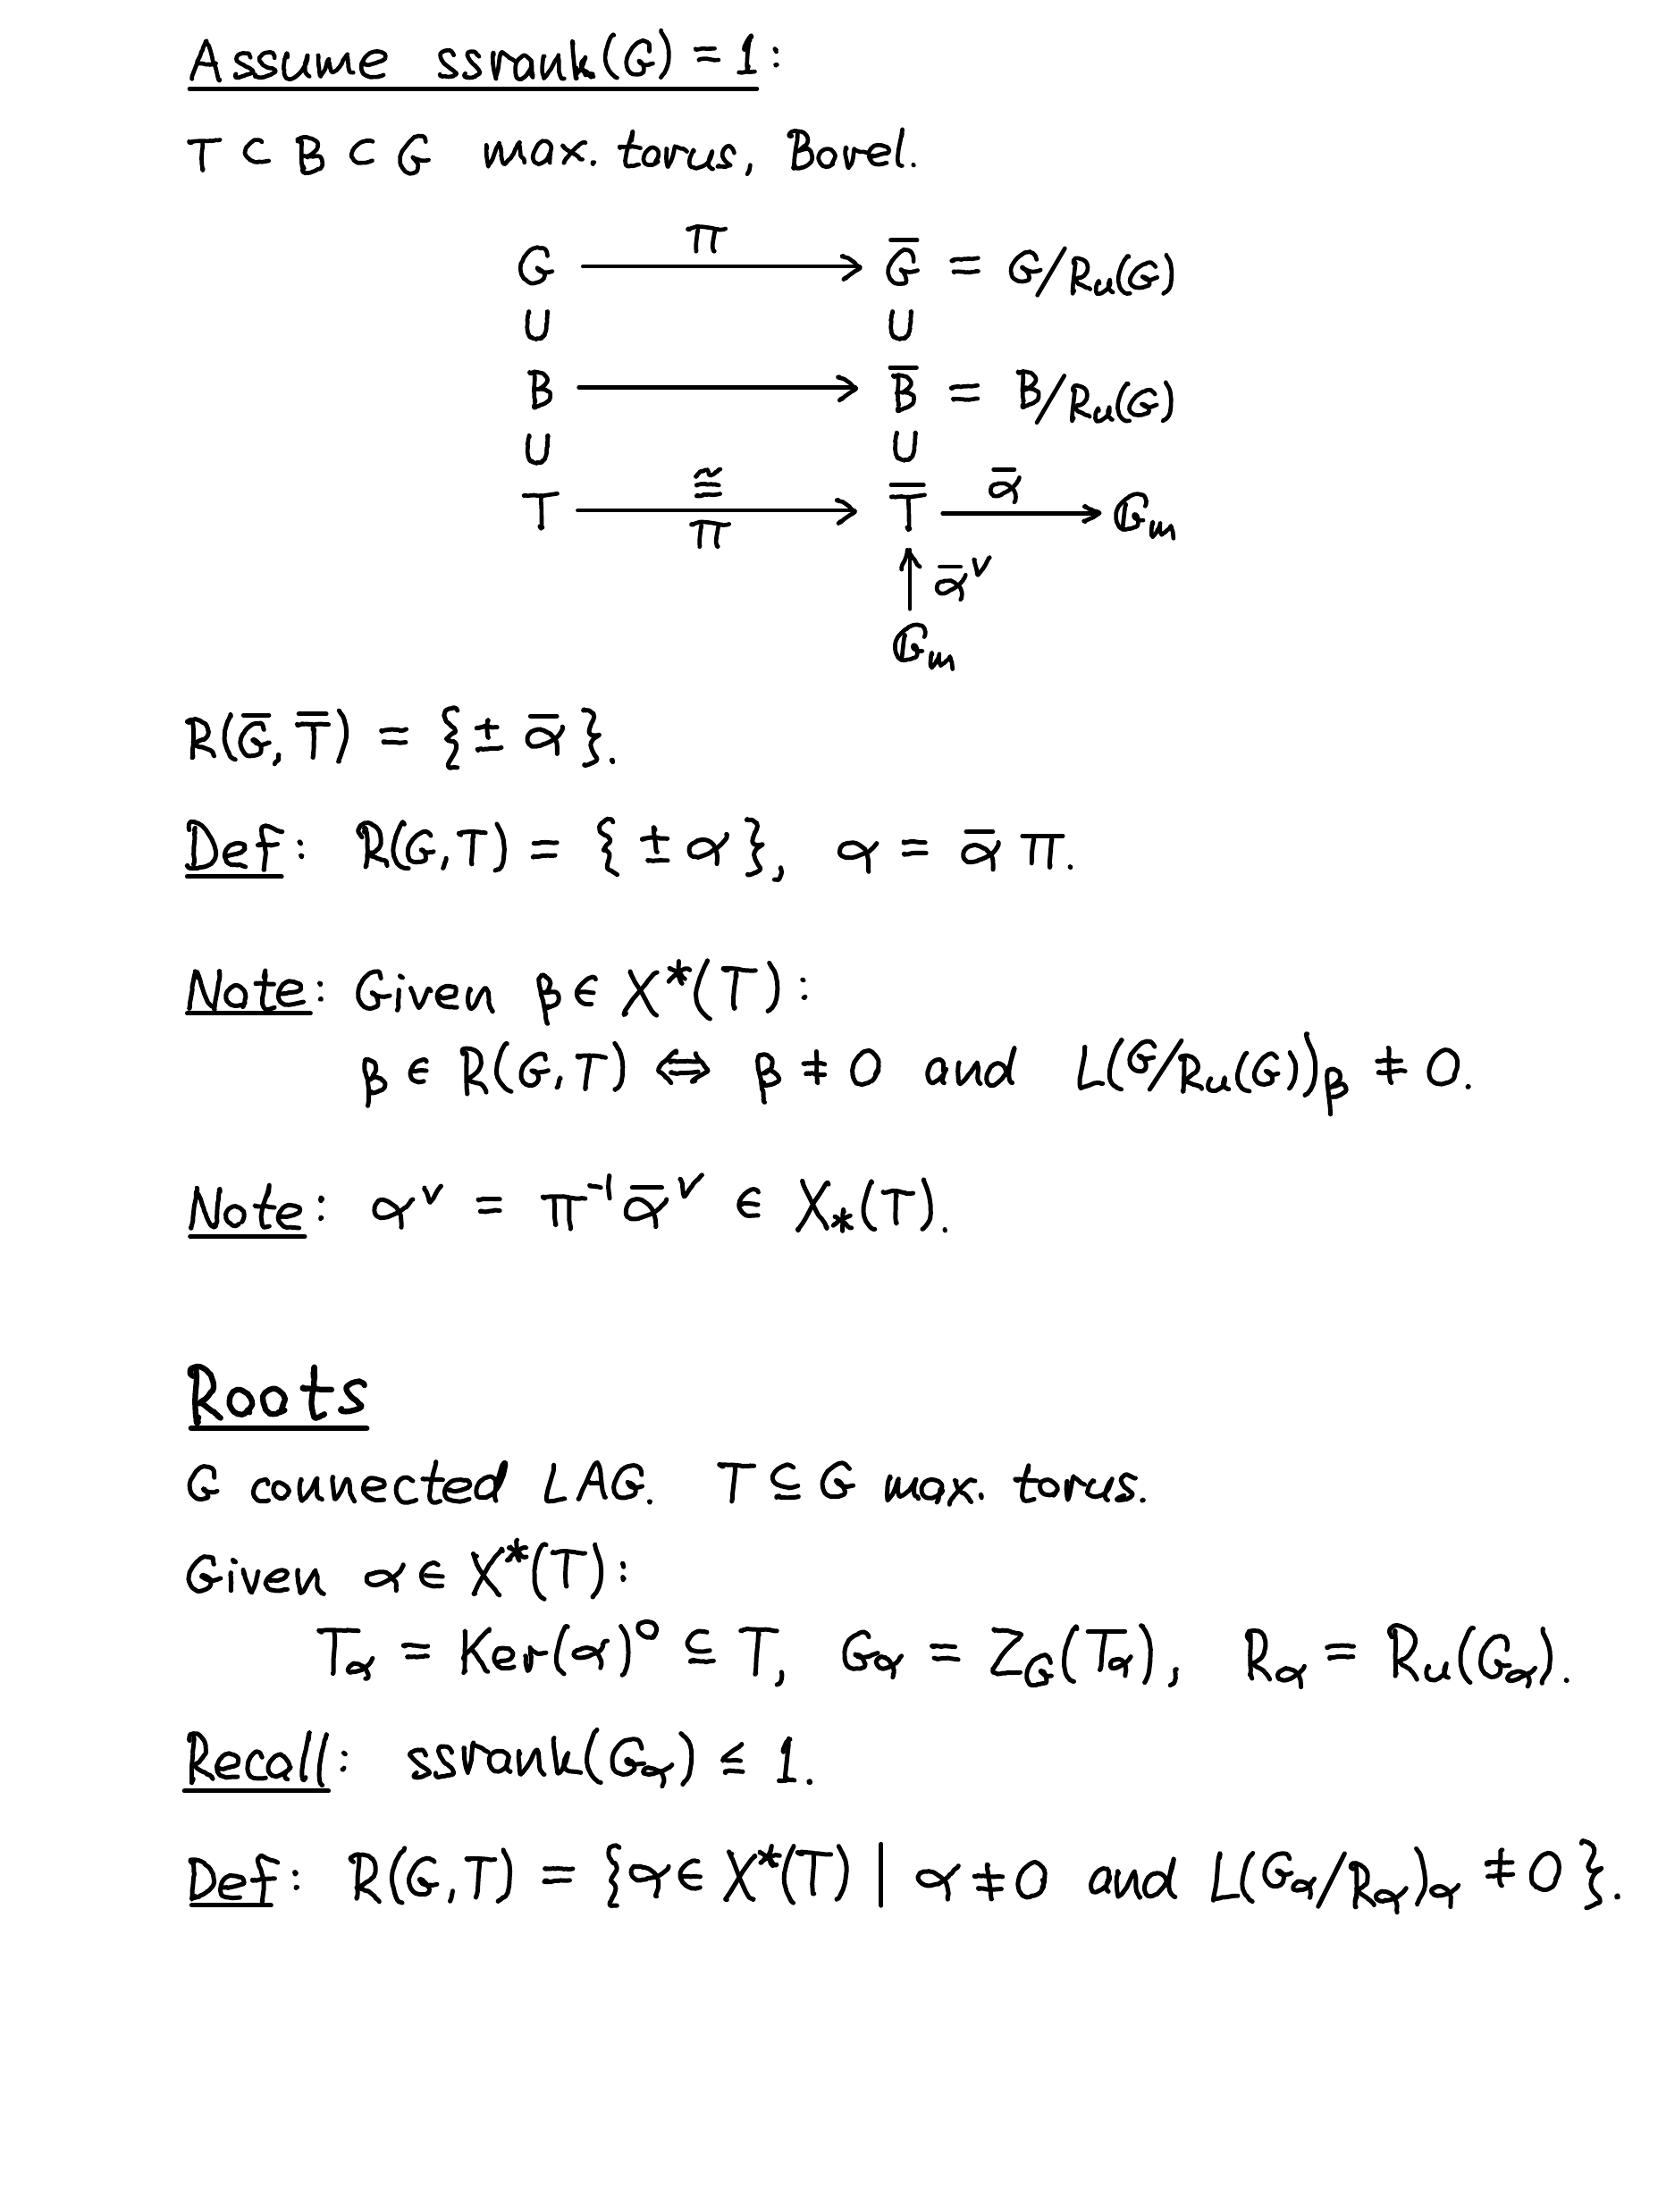 Assume ssrank(G) = 1:
T ⊂ B ⊂ G max. torus, Borel.
π
G ⟶ G̅ = G/Rᵤ(G)
∪ ∪
B ⟶ B̅ = B/Rᵤ(G)
∪ ∪
T ≅⟶π T̅ ⟶α̅ 𝔾ₘ
↑ α̅^∨
𝔾ₘ
R(G̅, T̅) = {± α̅}.
Def: R(G,T) = {± α}, α = α̅ π.
Note: Given β ∈ X*(T):
β ∈ R(G,T) ⇔ β ≠ 0 and L(G/Rᵤ(G))_β ≠ 0.
Note: α^∨ = π⁻¹ α̅^∨ ∈ X_*(T).
Roots
G connected LAG. T ⊆ G max. torus.
Given α ∈ X*(T):
T_α = Ker(α)° ⊆ T, G_α = Z_G(T_α), R_α = Rᵤ(G_α).
Recall: ssrank(G_α) ≤ 1.
Def: R(G,T) = {α ∈ X*(T) | α ≠ 0 and L(G_α/R_α)_α ≠ 0}.